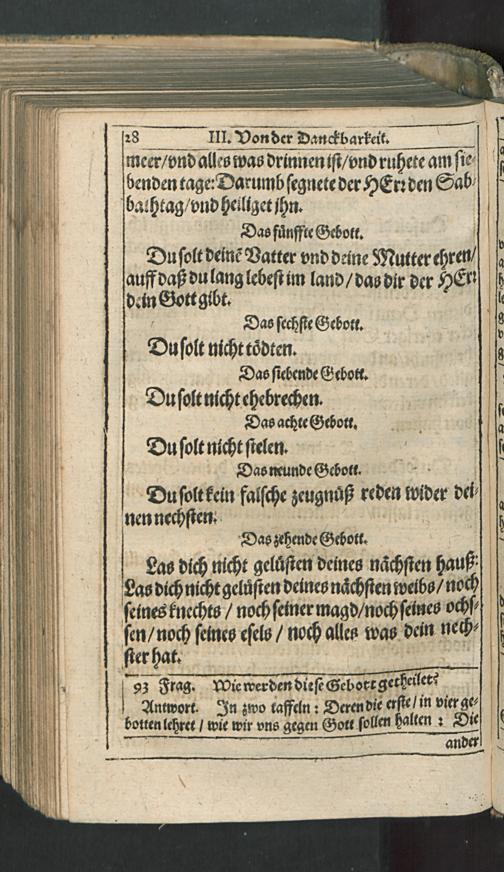 28 III. Von der Danckbarkeit.
meer/vnd alles was drinnen ist/vnd ruhete am sie-
benden tage: Darumb segnete der HErr den Sab-
bathtag/vnd heiliget jhn.
Das fünffte Gebott.
Du solt deinẽ Vatter vnd deine Mutter ehren/
auff daß du lang lebest im land/das dir der HErr
dein Gott gibt.
Das sechste Gebott.
Du solt nicht tödten.
Das siebende Gebott.
Du solt nicht ehebrechen.
Das achte Gebott.
Du solt nicht stelen.
Das neunde Gebott.
Du solt kein falsche zeugnüß reden wider dei-
nen nechsten.
Das zehende Gebott.
Las dich nicht gelüsten deines nächsten hauß:
Las dich nicht gelüsten deines nächsten weibs/noch
seines knechts/noch seiner magd/noch seines ochs-
sen/noch seines esels/noch alles was dein nech-
ster hat.
93 Frag. Wie werden diese Gebott getheilet?
Antwort. In zwo taffeln: Deren die erste/in vier ge-
botten lehret/wie wir vns gegen Gott sollen halten: Die
ander